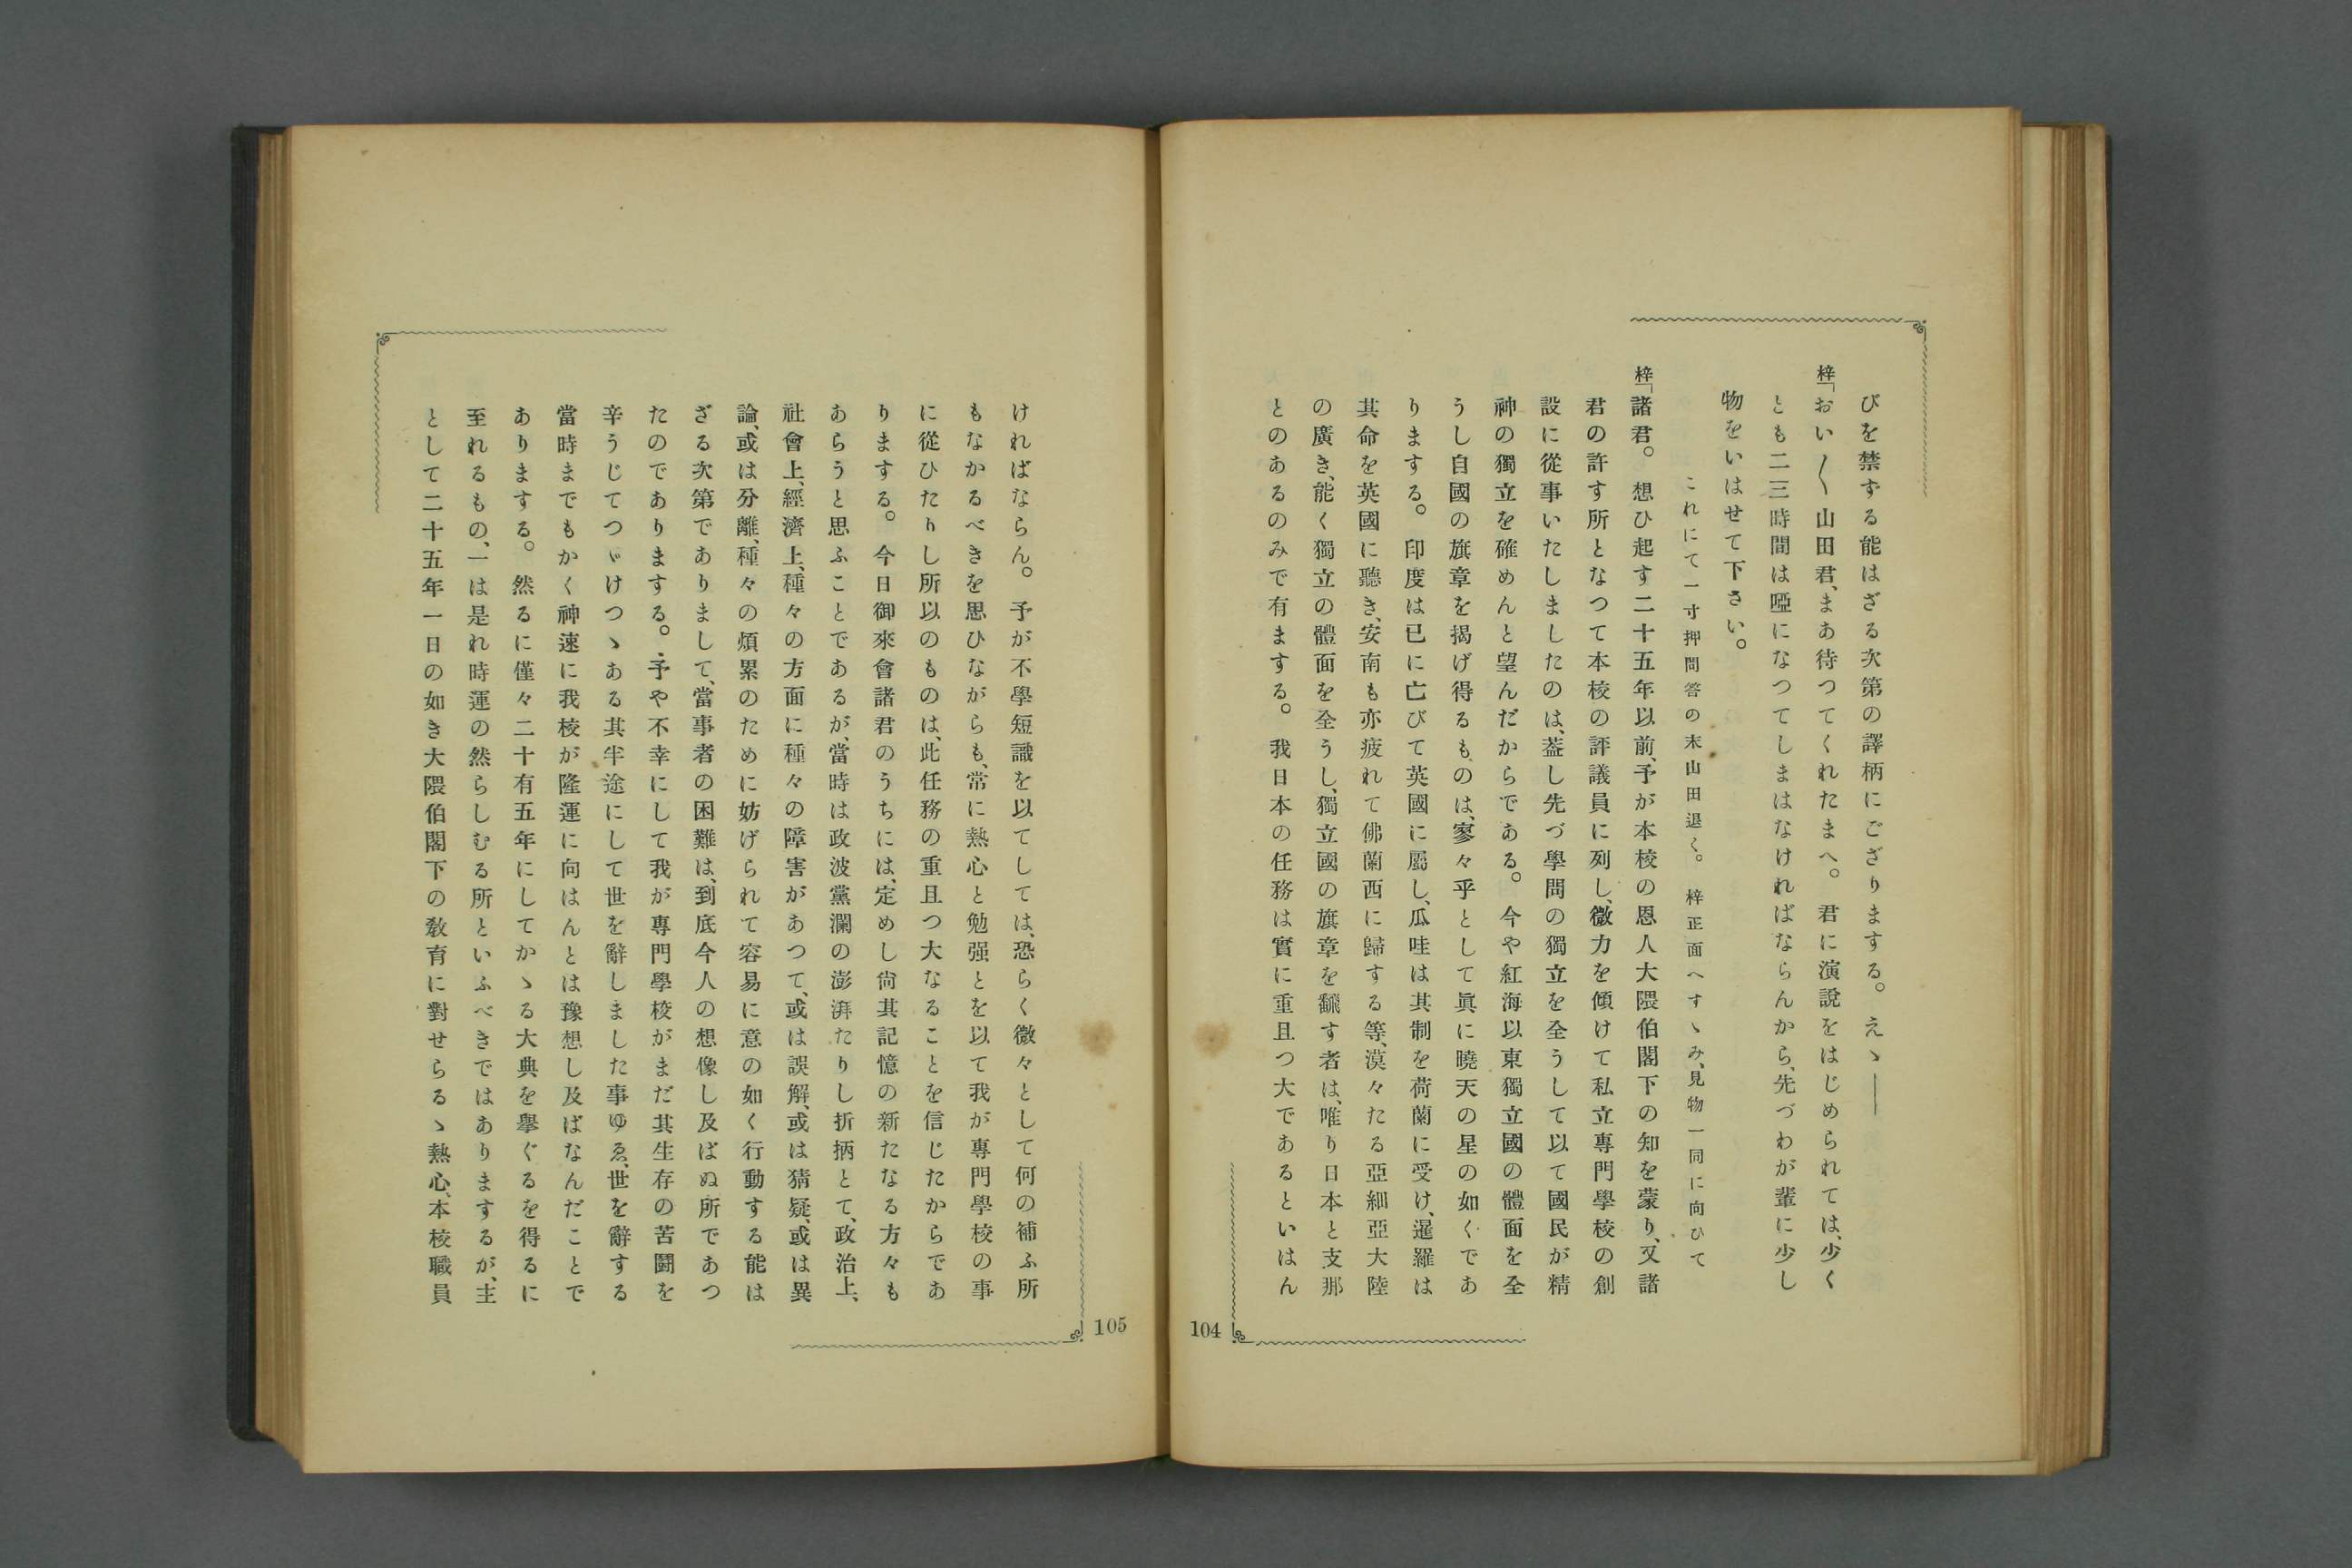 びを禁ずる能はざる次第の譯柄にござりまする。えゝ――
梓「おい〱山田君、まあ待つてくれたまへ。君に演說をはじめられては、少く
とも二三時間は啞になつてしまはなければならんから、先づわが輩に少し
物をいはせて下さい。
これにて一寸押問答の末山田退く。梓正面へすゝみ、見物一同に向ひて
梓「諸君。想ひ起す二十五年以前、予が本校の恩人大隈伯閣下の知を蒙り、又諸
君の許す所となつて本校の評議員に列し、微力を傾けて私立專門學校の創
設に從事いたしましたのは、葢し先づ學問の獨立を全うして以て國民が精
神の獨立を確めんと望んだからである。今や紅海以東獨立國の體面を全
うし自國の旗章を揭げ得るものは、寥々乎として眞に曉天の星の如くであ
りまする。印度は已に亡びて英國に屬し、瓜哇は其制を荷蘭に受け、暹羅は
其命を英國に聽き、安南も亦疲れて佛蘭西に歸する等、漠々たる亞細亞大陸
の廣き、能く獨立の體面を全うし、獨立國の旗章を飜す者は、唯り日本と支那
とのあるのみで有まする。我日本の任務は實に重且つ大であるといはん
104
105
ければならん。予が不學短識を以てしては、恐らく微々として何の補ふ所
もなかるべきを思ひながらも、常に熱心と勉强とを以て我が專門學校の事
に從ひたりし所以のものは、此任務の重且つ大なることを信じたからであ
りまする。今日御來會諸君のうちには、定めし尙其記憶の新たなる方々も
あらうと思ふことであるが、當時は政波黨瀾の澎湃たりし折柄とて、政治上、
社會上、經濟上、種々の方面に種々の障害があつて、或は誤解、或は猜疑、或は異
論、或は分離、種々の煩累のために妨げられて容易に意の如く行動する能は
ざる次第でありまして、當事者の困難は、到底今人の想像し及ばぬ所であつ
たのでありまする。予や不幸にして我が專門學校がまだ其生存の苦鬪を
辛うじてつゞけつゝある其半途にして世を辭しました事ゆゑ、世を辭する
當時までもかく神速に我校が隆運に向はんとは豫想し及ばなんだことで
ありまする。然るに僅々二十有五年にしてかゝる大典を擧ぐるを得るに
至れるもの、一は是れ時運の然らしむる所といふべきではありまするが、主
として二十五年一日の如き大隈伯閣下の敎育に對せらるゝ熱心、本校職員